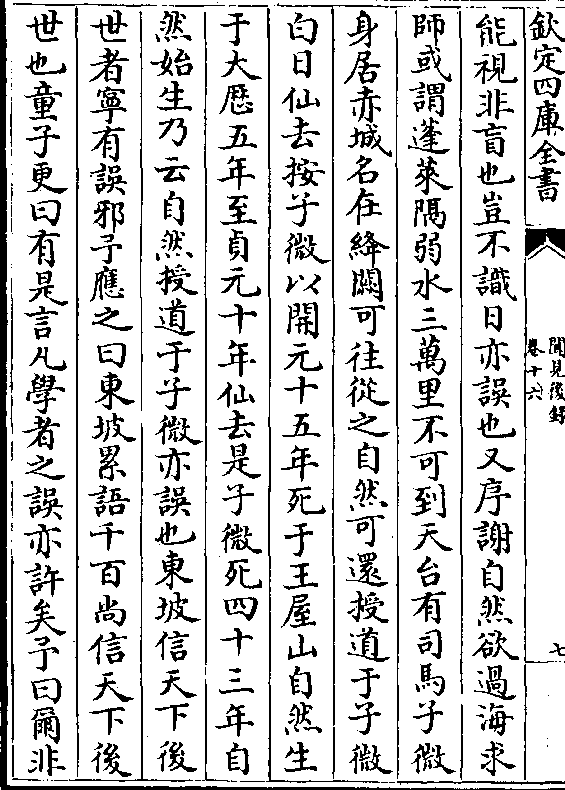 欽定四庫全書
聞見後録
卷十六
七
能視非盲也豈不識日亦誤也又序謝自然欲過海求
師或謂蓬萊隔弱水三萬里不可到天台有司馬子微
身居赤城名在絳闕可往從之自然可還授道于子微
白日仙去按子微以開元十五年死于王屋山自然生
于大厯五年至貞元十年仙去是子微死四十三年自
然始生乃云自然授道于子微亦誤也東坡信天下後
世者寧有誤邪予應之曰東坡累語千百尚信天下後
世也童子更曰有是言凡學者之誤亦許矣予曰爾非